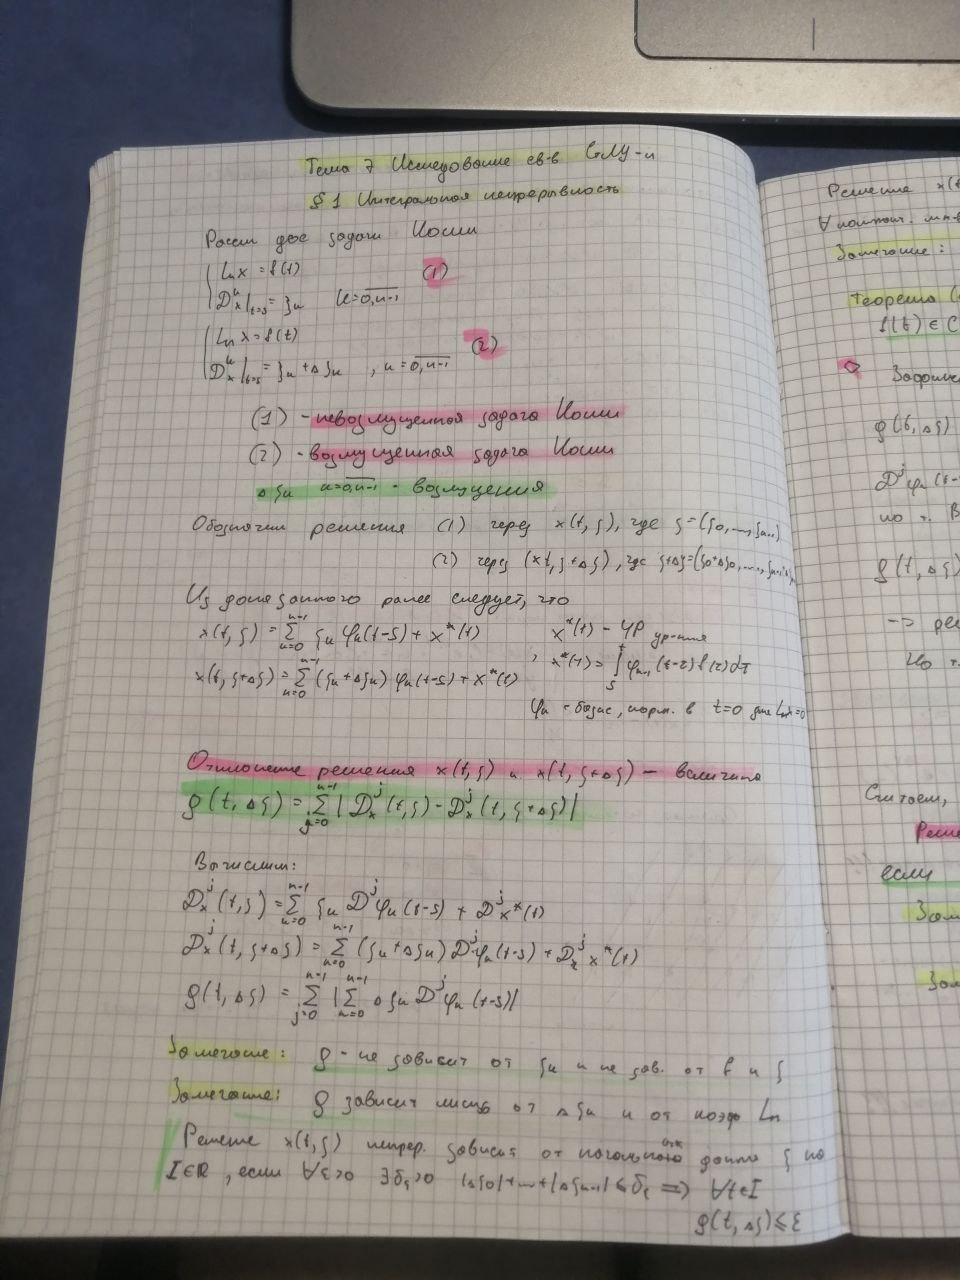 Тема 7 Исследование св-в СЛУ-и
§ 1 Интегральная непрерывность
Рассм две задачи Коши
Lnx = f(t)
(1)
Dᵏx|t=s = ξk k=0,n-1
Lnx = f(t)
(2)
Dᵏx|t=s = ξk + Δξk , k = 0,n-1
(1) - невозмущенная задача Коши
(2) - возмущенная задача Коши
Δξk k=0,n-1 - возмущения
Обозначим решения (1) через x(t,ξ), где ξ=(ξ0,...,ξn-1)
(2) через (xt,ξ+Δξ), где ξ+Δξ=(ξ0+Δξ0,...,
Из доказанного ранее следует, что
x(t,ξ) = Σ ξk φk(t-s) + x*(t) x*(t) - ЧР ур-ния
x(t,ξ+Δξ) = Σ (ξk+Δξk) φk(t-s) + x*(t) , x*(t) = ∫ φn-1(t-τ) f(τ) dτ
φk - базис, норм. в t=0 для Lnx=0
Отклонение решения x(t,ξ) и x(t,ξ+Δξ) - величина
ρ(t,Δξ) = Σ | Dʲx(t,ξ) - Dʲx(t,ξ+Δξ)|
Вычислим:
Dʲx(t,ξ) = Σ ξk Dʲφk(t-s) + Dʲx*(t)
Dʲx(t,ξ+Δξ) = Σ (ξk+Δξk) Dʲφk(t-s) + Dʲx*(t)
ρ(t,Δξ) = Σ |Σ Δξk Dʲφk(t-s)|
Замечание: ρ - не зависит от ξk и не зав. от f и ξ
Замечание: ρ зависит лишь от Δξk и от коэф Ln
Решение x(t,ξ) непрер. зависит от начальных данных ξ на
I∈R, если ∀ε>0 ∃δε>0 |Δξ0|+...+|Δξn-1|≤δε => ∀t∈I
ρ(t,Δξ)≤ε
Решение x(t
Замечание:
Теорема
f(t) ∈ C
Dʲφk(t-
но т.
ρ(t,Δξ)
-> ре
Но т.
Считаем,
Реше
если
Зам
Зам